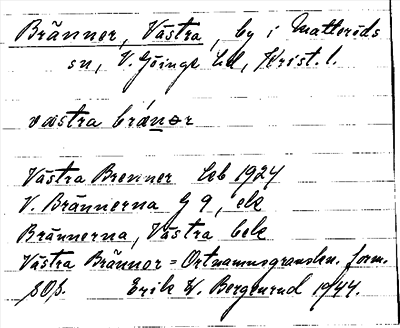 Bränner, Västra, by i Matteröds
sn, V. Göinge hd, Krist. l.
västra bránər
Västra Brenner Jeb 1924
V. Brännerna G 9, ek
Brännerna, Västra bek
Västra Brännor = Ortnamnsgranskn. form.
SOf. Erik W. Bergenrud 1944.